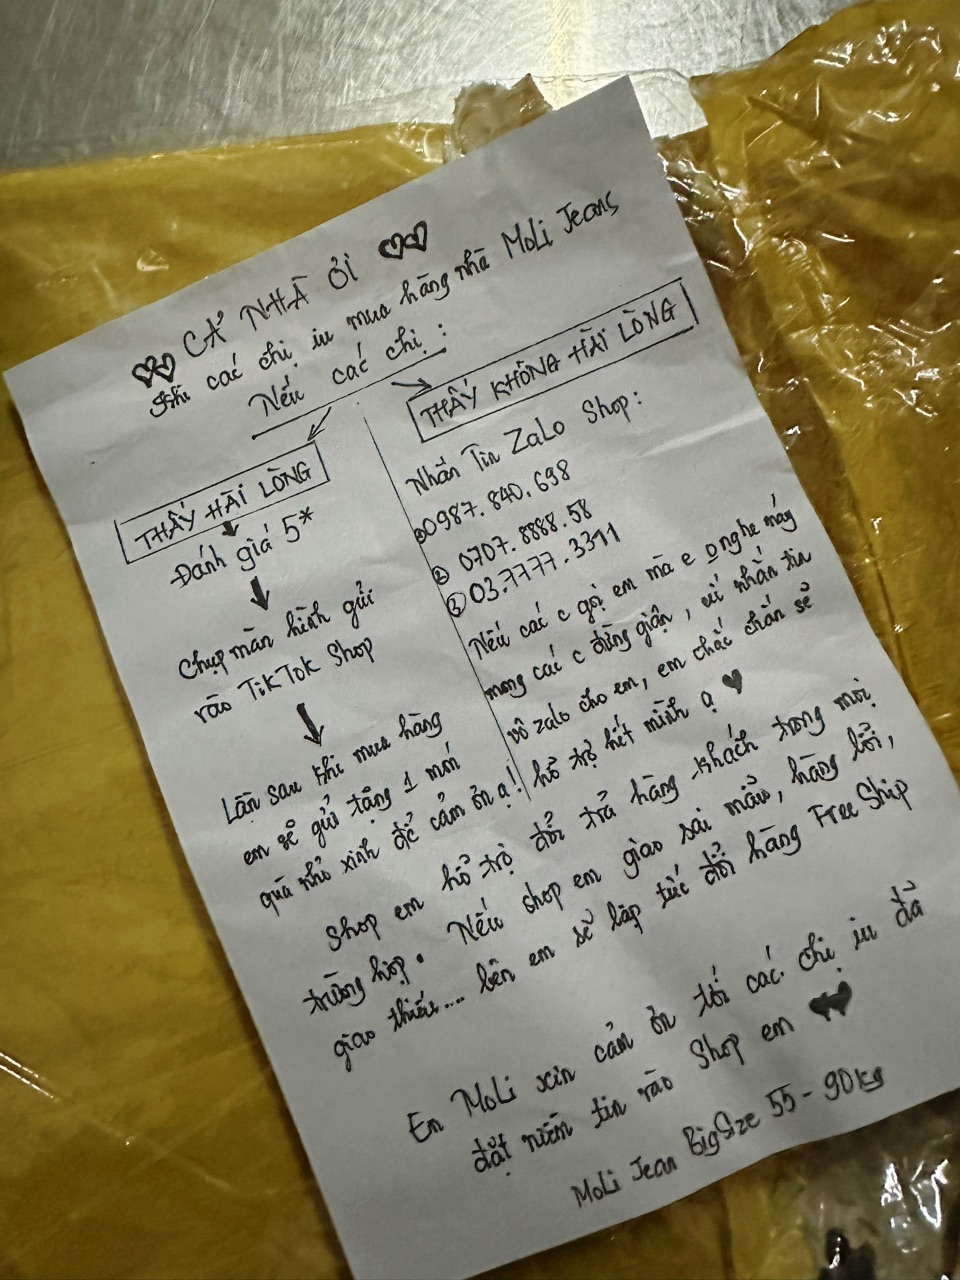 CẢ NHÀ ƠI
Khi các chị iu mua hàng nhà MoLi Jeans
Nếu các chị :
THẤY HÀI LÒNG
Đánh giá 5*
Chụp màn hình gửi
vào TikTok Shop
Lần sau khi mua hàng
em sẽ gửi tặng 1 món
quà nhỏ xinh để cảm ơn ạ!
THẤY KHÔNG HÀI LÒNG
Nhắn Tin ZaLo Shop:
① 0987.840.698
② 0707.8888.58
③ 03.7777.3311
Nếu các c gọi em mà e 0 nghe máy
mong các c đừng giận, cứ nhắn tin
vô zalo cho em, em chắc chắn sẽ
hỗ trợ hết mình ạ
Shop em hỗ trợ đổi trả hàng khách trong mọi
trường hợp. Nếu shop em giao sai mẫu, hàng lỗi,
giao thiếu.... bên em sẽ lập tức đổi hàng Free Ship
Em MoLi xin cảm ơn tới các chị iu đã
đặt niềm tin vào Shop em
MoLi Jean BigSize 55 - 90kg